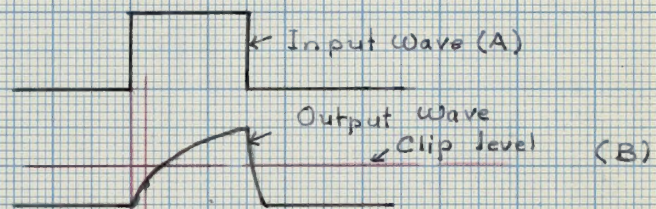 Input Wave (A)
Output Wave
Clip level
(B)